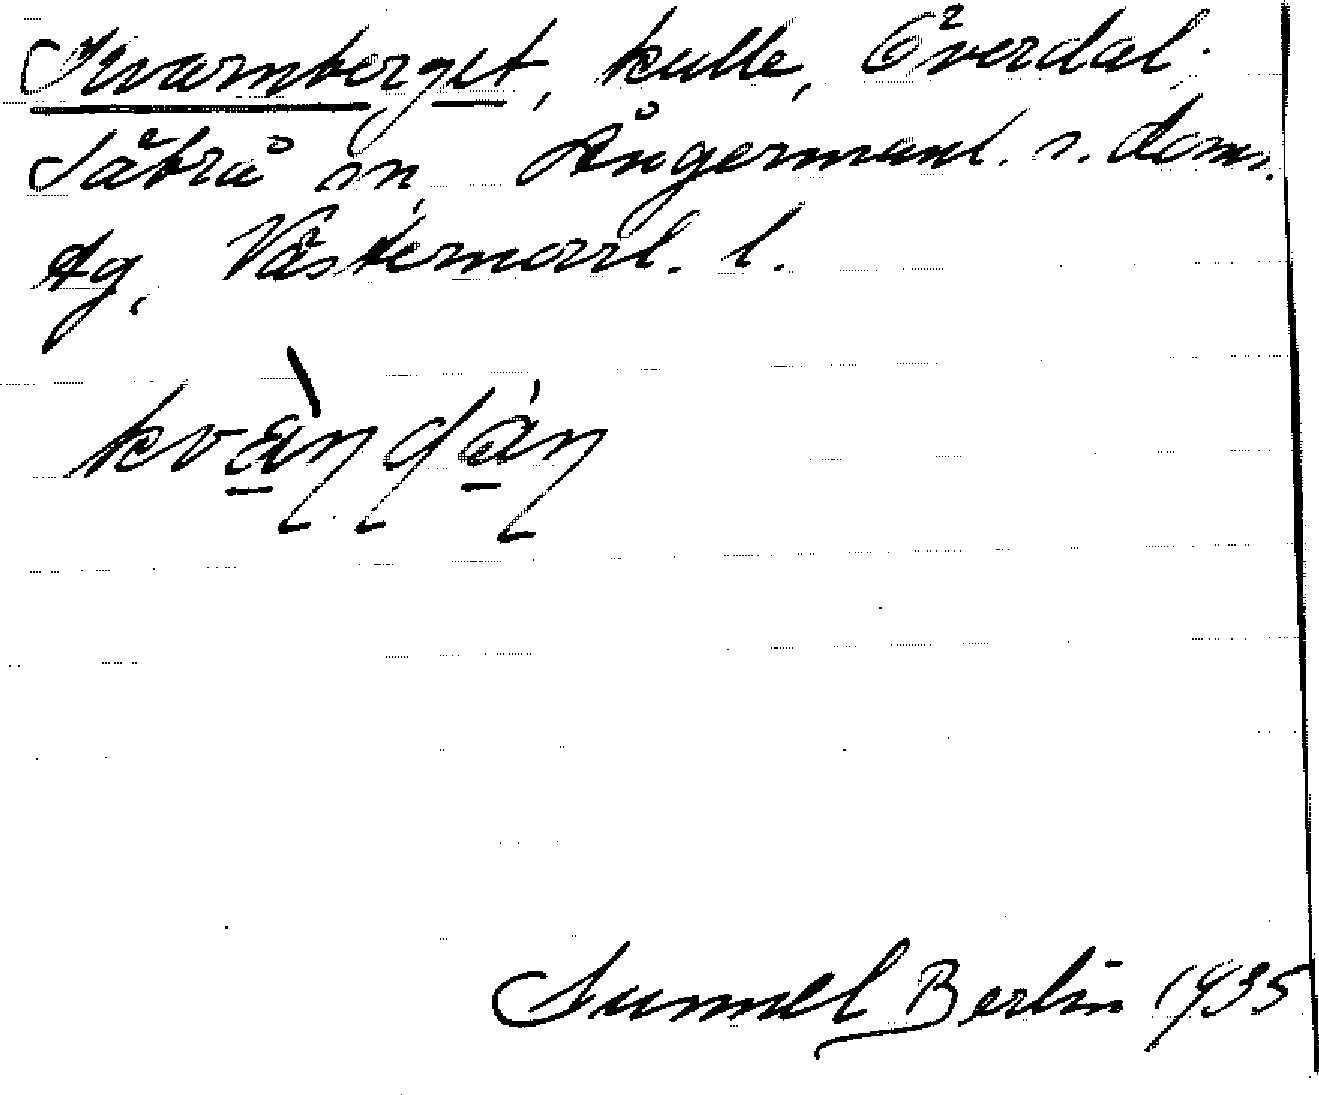 Kvarnberget, kulle, Överdal,
Säbrå sn, Ångermanl. s. doms.
tg, Västernorrl. l.
Gunnel Berlin 1935